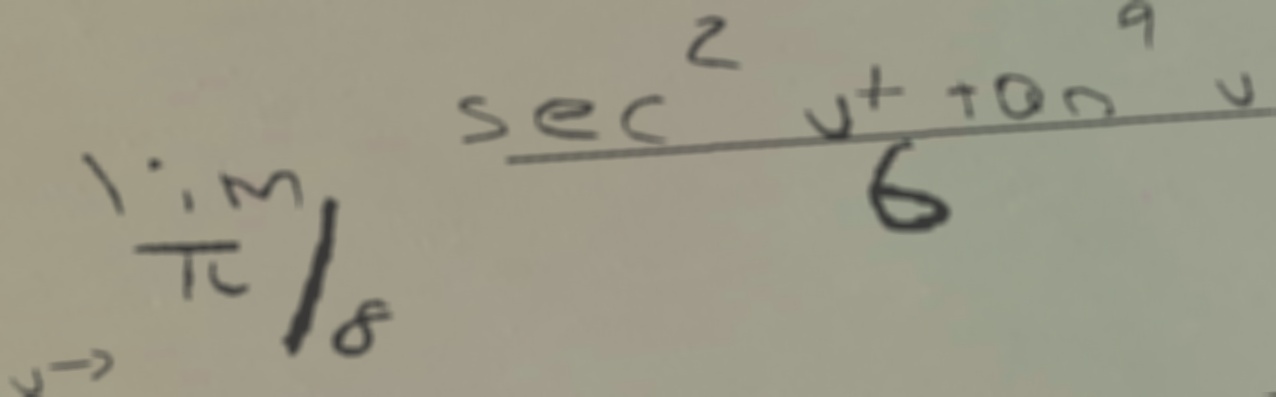 lim v→π/8 (sec² v + tan⁹ v)/6